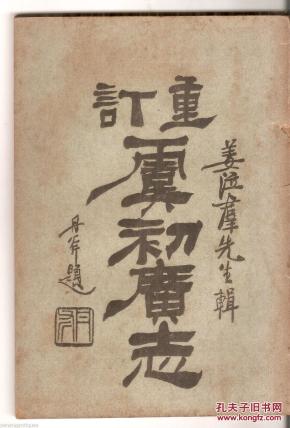 姜泣羣先生輯
重訂
虞初廣志
丹斧題
孔夫子旧书网